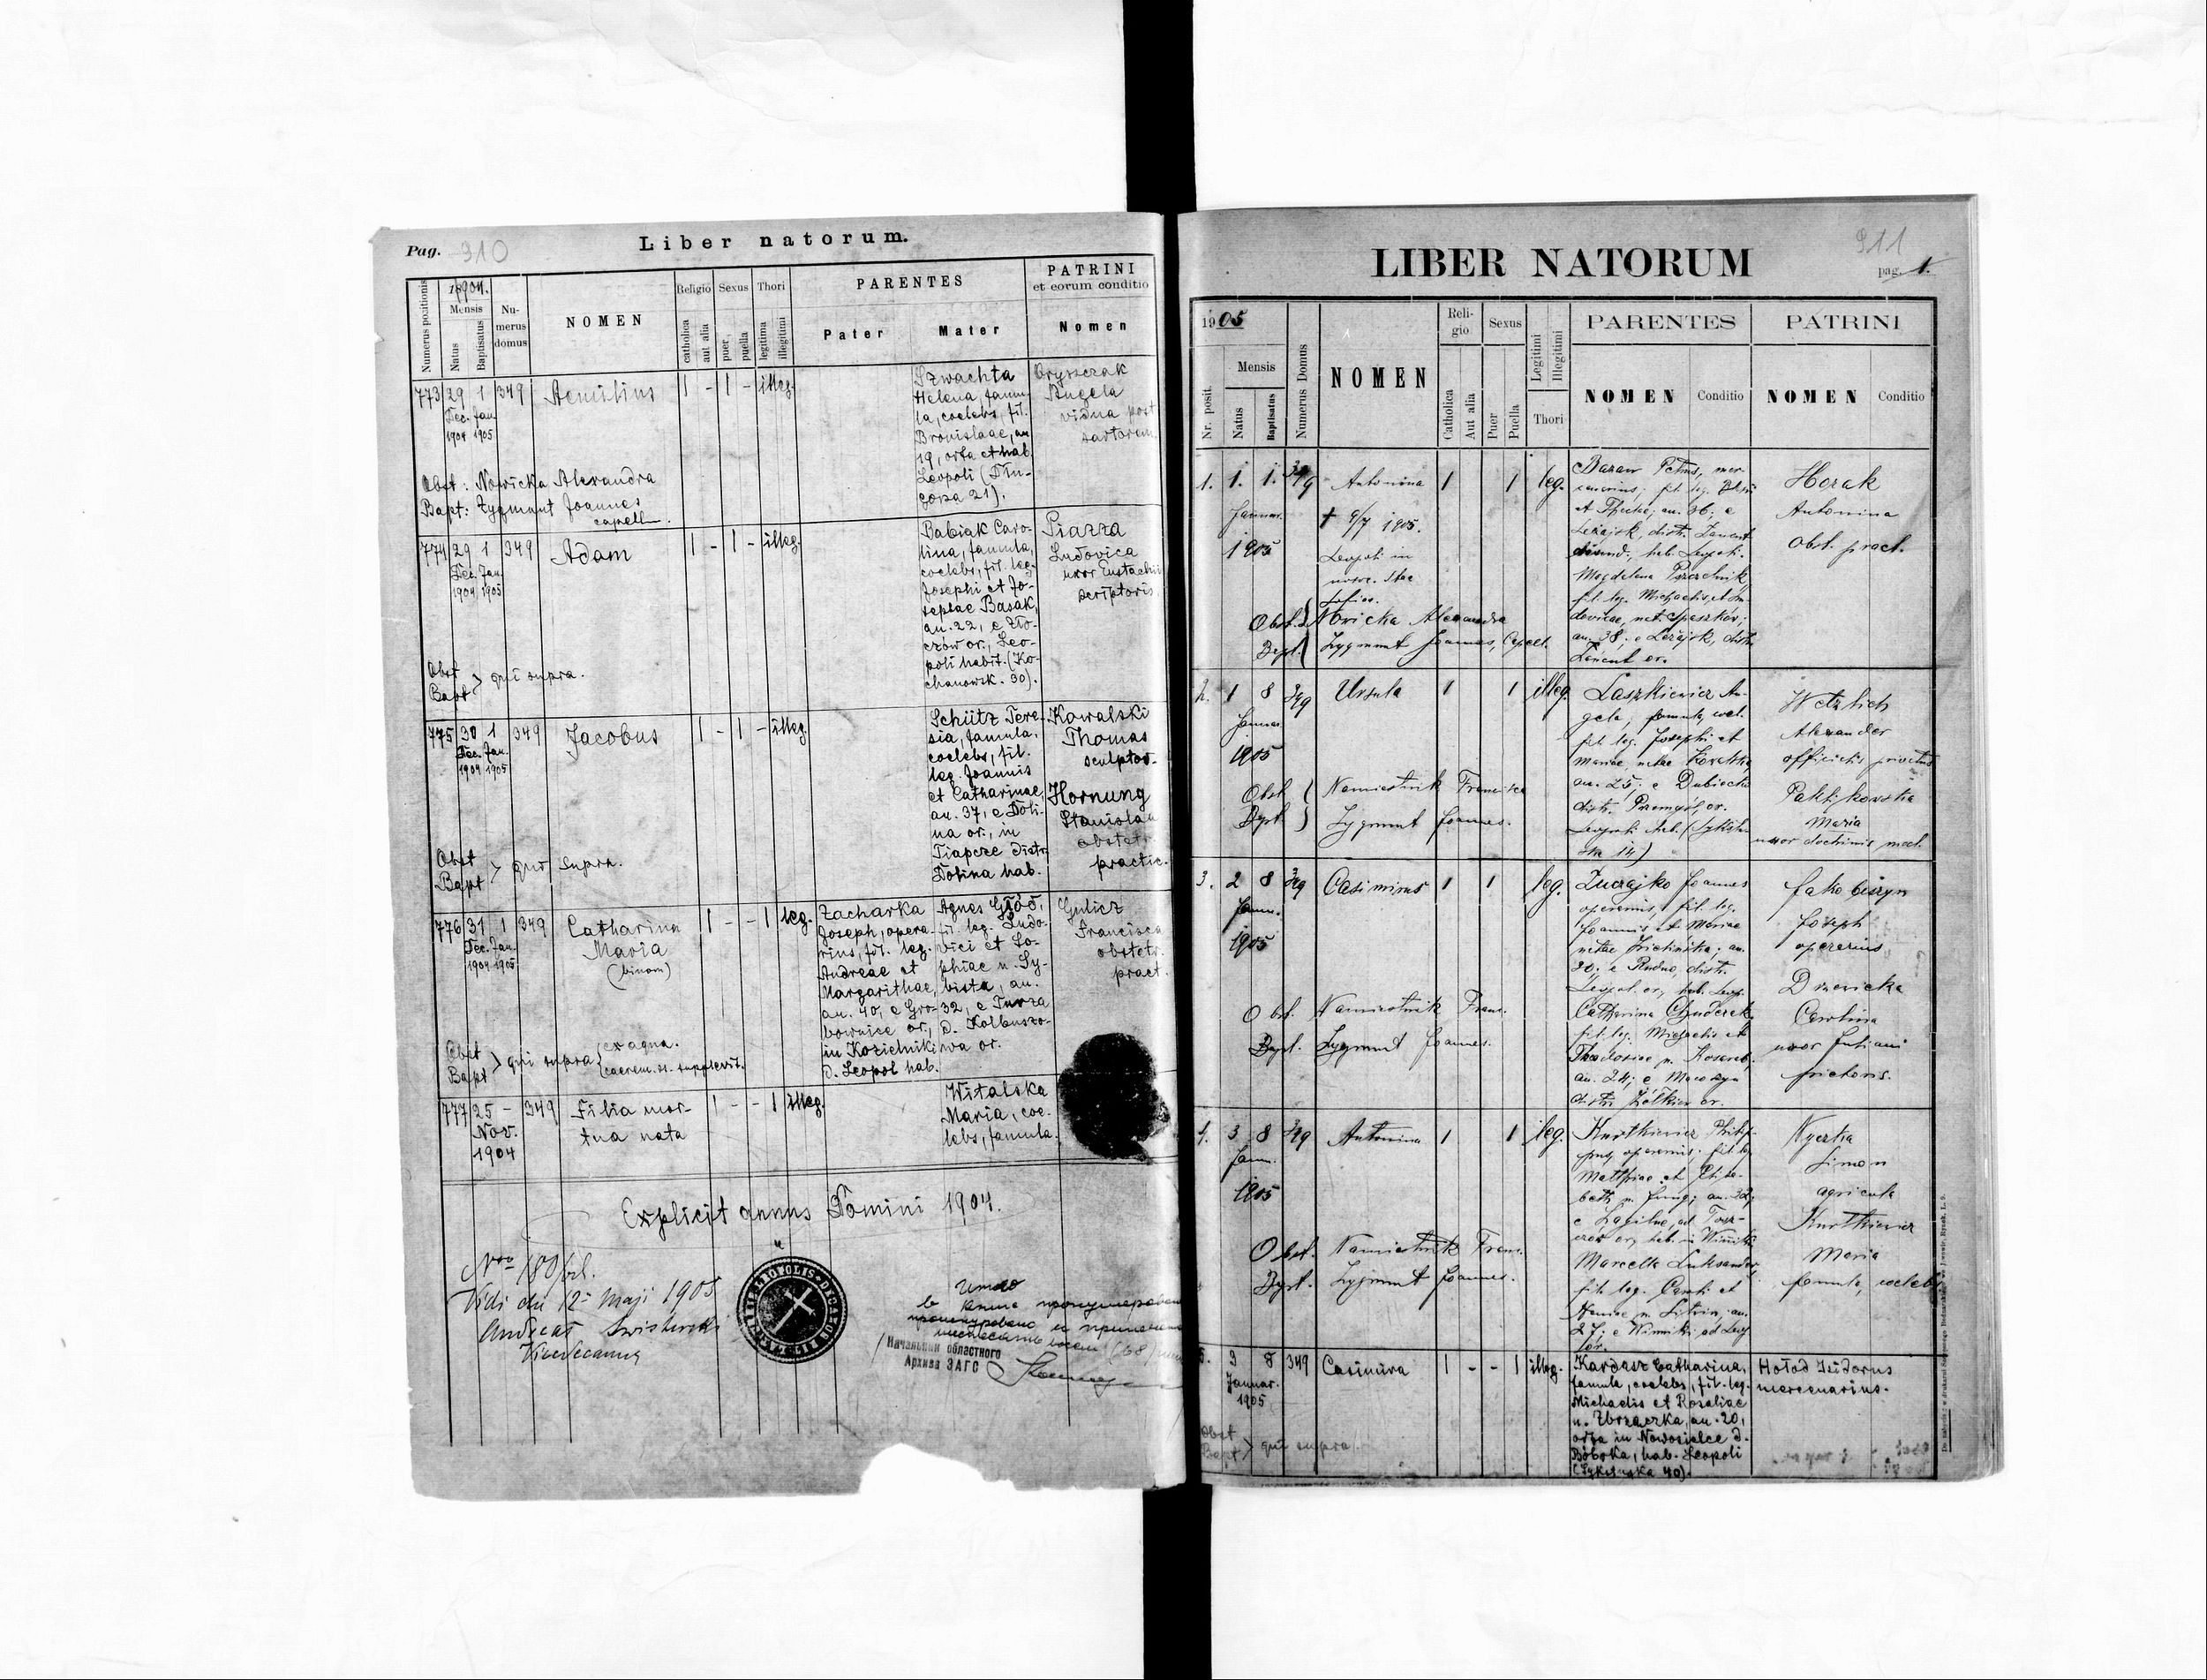 Pag. 910
Liber natorum.
Numerus positionis
1904.
Mensis
Natus
Baptisatus
Numerus domus
NOMEN
Religio
catholica
aut alia
Sexus
puer,
puella
Thori
legitima
illegitimi
PARENTES
Pater
Mater
PATRINI
et eorum conditio
Nomen
773 29 1 349 Aemilius 1 - 1 - illeg.
Dec. Jan.
1904 1905
Szwachta
Helena, famu-
la, coelebs, fil.
Bronislaae, an.
19, orta et hab.
Leopoli (Dłu-
gosza 21).
Oryszczak
Angela
vidua post
sartorem
Obst: Nowicka Alexandra
Bapt: Zygmunt Joannes
capell.
774 29 1 349 Adam 1 - 1 - illeg.
Dec. Jan.
1904 1905
Babiak Caro-
lina, famula,
coelebs, fil. leg.
Josephi et Jo-
sephae Basak,
an. 22, e Zło-
czów or., Leo-
poli habit. (Ko-
chanowsk. 30).
Piazza
Ludovica
uxor Eustachii
scriptoris
Obst
Bapt > qui supra.
775 30 1 349 Jacobus 1 - 1 - illeg.
Dec. Jan.
1904 1905
Schütz Tere-
sia, famula,
coelebs, fil.
leg. Joannis
et Catharinae,
an. 37, e Doli-
na or., in
Tiapcze distr.
Dolina hab.
Kowalski
Thomas
sculptor
Hornung
Stanisla
obstetr.
practic.
Obst
Bapt > qui supra.
776 31 1 349 Catharina 1 - - 1 leg.
Dec. Jan.
1904 1905
Maria
(binom)
Zacharka
Joseph, opera-
rius, fil. leg.
Andreae et
Margarithae,
an. 40, e Gro-
bownice or.,
in Kozielniki
d. Leopol hab.
Agnes Głód,
fil. leg. Ludo-
vici et So-
phiae n. Sy-
bista, an.
32, e Turza
d. Kolbuszo-
wa or.
Gulicz
Francisca
obstetr.
pract.
Obst
Bapt > qui supra { ex aqua.
caerem. ss. supplevit.
777 25 - 349 Filia mor- 1 - - 1 illeg.
Nov.
1904
tua nata
Witalska
Maria, coe-
lebs, famula.
Explicit annus Domini 1904.
Vidi die 12 Maji 1905
Andreas
Vicedecanus
Итого
в книге пронумеровано
прошнуровано и
(68)
Начальник областного
Архива ЗАГС
LIBER NATORUM
911
pag. 1.
Nr. posit.
1905
Mensis
Natus
Baptisatus
Numerus Domus
NOMEN
Reli-
gio
Catholica
Aut alia
Sexus
Puer
Puella
Legitimi
Illegitimi
Thori
PARENTES
NOMEN
Conditio
PATRINI
NOMEN
Conditio
1. 1. 1. 349 Antonina 1 1 leg.
Januar.
1905
† 9/7 1905.
Leopoli in
Petrus, mer
cenarius; fil. leg.
an. 36; e
Leżajsk, distr. Łancut
oriund., hab. Leopoli.
Magdalena
fil. leg. Michaelis et
an. 38. e Leżajsk, distr.
Łancut or.
Horak
Antonina
Obst. pract.
Obst. Nowicka Alexandra
Bapt. Zygmunt Joannes, Capell.
2. 1 8 349 Ursula 1 1 illeg.
Januar.
1905
Laszkiewicz An-
gela, famula, coel.
fil. leg. Josephi et
Mariae, natae
an. 25; e Dubiecko
distr. Przemyśl, or.
Leopoli hab. (Sykstu-
ska 14)
Alexander
officialis privatus
Maria
uxor doctrinis med.
Obst Namiestnik Francisca
Bapt. Zygmunt Joannes.
3. 2 8 349 Casimirus 1 1 leg.
Januar.
1905
Joannes
operarius, fil. leg.
Joannis et Mariae
natae an.
30; e Rudno, distr.
Leopol. or., hab. Leop.
Catharina
fil. leg. Michaelis et
Theodosiae n.
an. 24; e Macoszyn
distr. Żółkiew or.
Joseph
operarius
Carolina
uxor Juliani
pictoris.
Obst. Namiestnik Franc.
Bapt. Zygmunt Joannes.
4. 3 8 349 Antonina 1 1 leg.
Janu.
1905
Kurtkiewicz Philip-
pus, operarius, fil. leg.
Matthiae et Elisa-
beth n. Jung; an. 32;
hab. in Winniki
Marcella
fil. leg.
27; e Winniki ad Leop
or.
Simon
agricola
Kurtkiewicz
Maria
famula, coelebs
Obst. Namiestnik Franc.
Bapt. Zygmunt Joannes.
5. 3 8 349 Casimira 1 - - 1 illeg.
Januar.
1905
Kardasz Catharina,
famula, coelebs, fil. leg.
Michaelis et Rosaliae
n. Zbrzaczka, an. 20,
orta in Nowosielce d.
Bóbrka, hab. Leopoli
(Sykstuska 40).
Hołod Isidorus
mercenarius.
Obst
Bapt > qui supra.